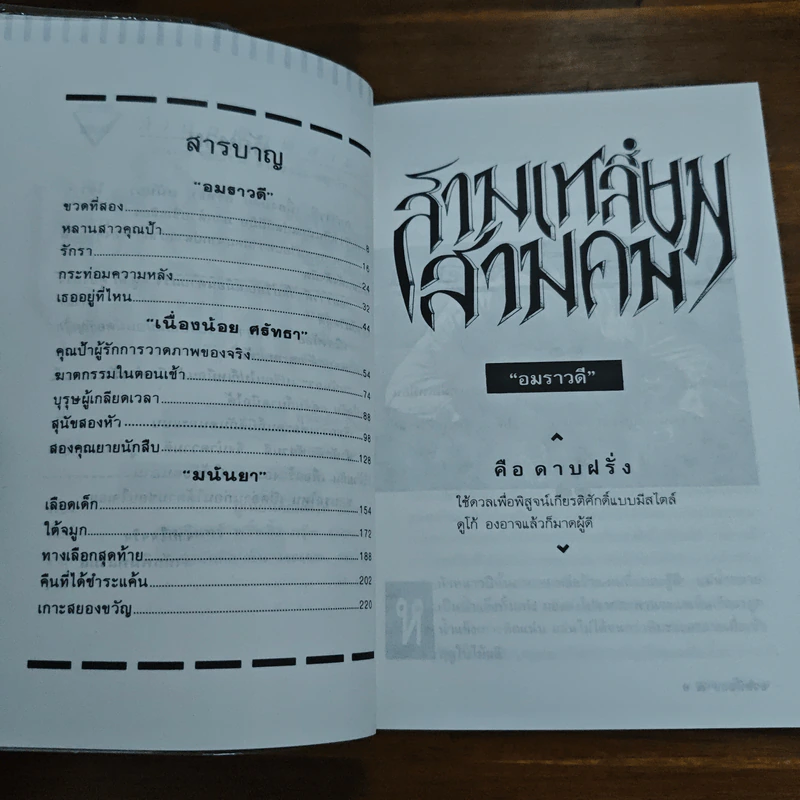 สารบาญ
"อมราวดี"
ขวดที่สอง........8
หลานสาวคุณป้า........16
รักรา........24
กระท่อมความหลัง........32
เธออยู่ที่ไหน........44
"เนื่องน้อย ศรัทธา"
คุณป้าผู้รักการวาดภาพของจริง........54
ฆาตกรรมในตอนเช้า........74
บุรุษผู้เกลียดเวลา........88
สุนัขสองหัว........98
สองคุณยายนักสืบ........128
"มนันยา"
เลือดเด็ก........154
ใต้จมูก........172
ทางเลือกสุดท้าย........188
คืนที่ได้ชำระแค้น........202
เกาะสยองขวัญ........220
สามเหลี่ยม
สามคม
"อมราวดี"
คือ ดาบฝรั่ง
ใช้ดวลเพื่อพิสูจน์เกียรติศักดิ์แบบมีสไตล์
ดูโก้ องอาจแล้วก็มาดผู้ดี